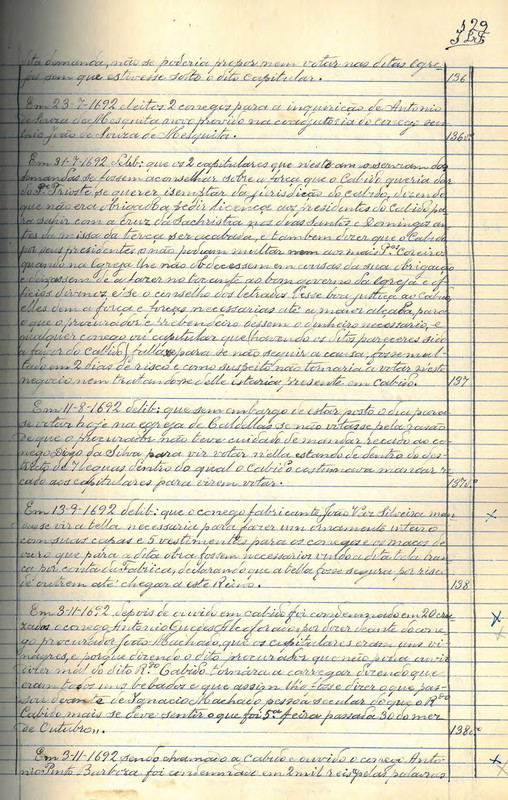 129
dita demanda, não se poderia propor nem votar nas ditas Egre-
jas sem que estivesse solto o dito capitular. 136
Em 23-7-1692 eleitos 2 conegos para a inquirição de Antonio
de Souza de Mesquita provido na coadjutoria do conego
João de Souza de Mesquita. 136vº
Em 31-7-1692 delib: que os 2 capitulares que serviam das
demandas se fossem aconselhar sobre a força que o Cabido queria dar
do Pe. querer isemptar da jurisdicção do cabido, dizendo
que não era obrigado a pedir licença aos presidentes do Cabido pa-
ra sahir com a cruz da Sachristia nos dias Santos e Domingos an-
tes da missa da terça ser acabada, e tambem dizer que o Cabido
por seus presidentes o não podiam multar nem aos mais Pes Coreiros
quando na Egreja lhe não obdecessem em cousas da sua obrigação
e deixassem de a fazer no tocante ao bom governo da Egreja e of-
ficios divinos, e se o conselho dos letrados disse boa justiça ao Cabido,
elles dem e força e forças necessarias até a maior alçada, para
o que o procurador e prebendeiro dessem o dinheiro necessario, e
qualquer conego ou capitular que havendo os ditos pareceres seja
a favor do Cabido, fallasse para se não seguir a causa, fosse mul-
tado em 2 dias de risco e como suspeito não tornaria a votar n'este
negocio nem tratando-se d'elle estaria presente em cabido. 137
Em 11-8-1692 delib: que sem embargo de estar posto o dia para
se votar hoje na egreja de se não votasse pela razão
de que o procurador não teve cuidado de mandar recado ao co-
nego Diogo da Silva para vir votar n'ella estando de dentro do des-
tricto de 7 legoas dentro do qual o Cabido costumava mandar re-
cado aos capitulares para virem votar. 137vº
Em 13-9-1692 delib: que o conego fabricante João Silveira man-
dasse vir a tella necessaria para fazer um ornamento inteiro
com suas capas e 5 vestimentas para os conegos e os maços de
ouro que para a dita obra fossem necessarios vindo a dita tela bran-
ca por conta da Fabrica, declarando que a tella fosse segura por risco
de outrem até chegar a este Reino. 138
Em 3-11-1692 depois de ouvido em cabido foi condemnado em 20 cru-
zados o conego Antonio Guedes Alcoforado, por dizer deante do cone-
go procurador João Machado, que os capitulares eram uns vi-
nagres, e porque dizendo o dito procurador que não queria ouvir
dizer mal do dito Rdo Cabido tornára a carregar dizendo que
eram todos uns bebados e que assim lho fosse dizer o que pas-
sou deante de Ignacio Machado pessoa secular do que o Rdo
Cabido mais se deve sentir o que foi 5ª feira passada 30 do mez
de Outubro. 138vº
Em 3-11-1692 sendo chamado a cabido e ouvido o conego Anto-
nio Pinto Barboza foi condemnado em 2 mil reis pelas palavras